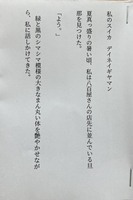 私のスイカ　デイネイギヤマン
夏真っ盛りの暑い頃、私は八百屋さんの店先に並んでいる旦
那を見つけた。
「よう。」
緑と黒のシマシマ模様の大きなまん丸い体を艶やかせなが
ら、私に話しかけてきた。